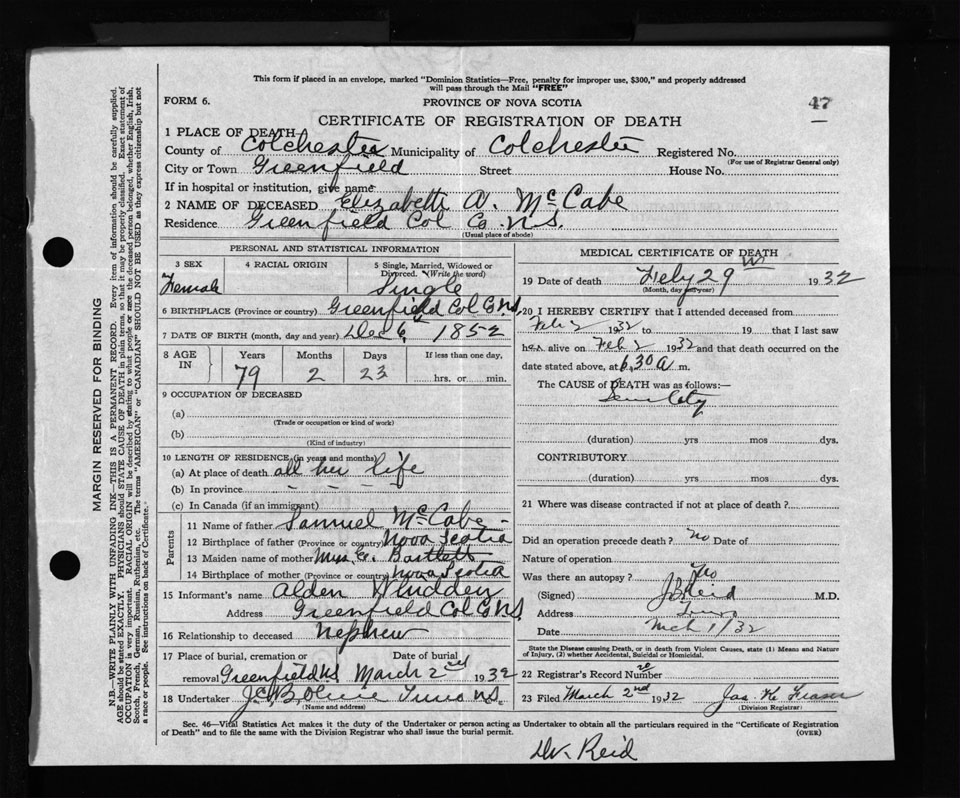 This form if placed in an envelope, marked "Dominion Statistics—Free, penalty for improper use, $300," and properly addressed
will pass through the Mail "FREE"
FORM 6.
PROVINCE OF NOVA SCOTIA
47
CERTIFICATE OF REGISTRATION OF DEATH
1 PLACE OF DEATH
County of Colchester Municipality of Colchester Registered No.
(For use of Registrar General only)
City or Town Greenfield Street House No.
If in hospital or institution, give name
2 NAME OF DECEASED Elizabeth A. McCabe
Residence Greenfield Col Co. N.S.
(Usual place of abode)
PERSONAL AND STATISTICAL INFORMATION
3 SEX
Female
4 RACIAL ORIGIN
5 Single, Married, Widowed or
Divorced. (Write the word)
Single
6 BIRTHPLACE (Province or country) Greenfield Col Co N.S.
7 DATE OF BIRTH (month, day and year) Dec 6th 1852
8 AGE
IN
Years
79
Months
2
Days
23
If less than one day,
hrs. or min.
9 OCCUPATION OF DECEASED
(a)
(Trade or occupation or kind of work)
(b)
(Kind of industry)
10 LENGTH OF RESIDENCE (in years and months)
(a) At place of death all her life
(b) In province - - - -
(c) In Canada (if an immigrant)
Parents
11 Name of father Samuel McCabe -
12 Birthplace of father (Province or country) Nova Scotia
13 Maiden name of mother Bartlett
14 Birthplace of mother (Province or country) Nova Scotia
15 Informant's name Alden
Address Greenfield Col Co N.S.
16 Relationship to deceased nephew
17 Place of burial, cremation or
removal Greenfield N.S.
Date of burial
March 2nd 1932
18 Undertaker Truro N.S.
(Name and address)
MEDICAL CERTIFICATE OF DEATH
19 Date of death Feby 29th 1932
(Month, day and year)
20 I HEREBY CERTIFY that I attended deceased from
Feb 2 1932 to 19 that I last saw
her alive on Feb 2 1932 and that death occurred on the
date stated above, at 6.30 A m.
The CAUSE of DEATH was as follows:—
(duration) yrs mos dys.
CONTRIBUTORY
(duration) yrs mos dys.
21 Where was disease contracted if not at place of death?
Did an operation precede death? no Date of
Nature of operation
Was there an autopsy? No
(Signed) Reid M.D.
Address Truro
Date Mch 1/32
State the Disease causing Death, or in death from Violent Causes, state (1) Means and Nature
of Injury, (2) whether Accidental, Suicidal or Homicidal.
22 Registrar's Record Number 20
23 Filed March 2nd 1932 Jas. K. Fraser
(Division Registrar)
Sec. 46—Vital Statistics Act makes it the duty of the Undertaker or person acting as Undertaker to obtain all the particulars required in the "Certificate of Registration
of Death" and to file the same with the Division Registrar who shall issue the burial permit.
(OVER)
Dr. Reid
MARGIN RESERVED FOR BINDING
N.B.—WRITE PLAINLY WITH UNFADING INK—THIS IS A PERMANENT RECORD. Every item of information should be carefully supplied.
AGE should be stated EXACTLY. PHYSICIANS should STATE CAUSE OF DEATH in plain terms, so that it may be properly classified. Exact statement of
OCCUPATION is very important. RACIAL ORIGIN will be described by stating to what people or race the deceased person belonged, whether English, Irish,
Scotch, French, German, Russian, Ruthenian, etc. The terms "AMERICAN" or "CANADIAN" SHOULD NOT BE USED as they express citizenship but not
a race or people. See instructions on back of Certificate.